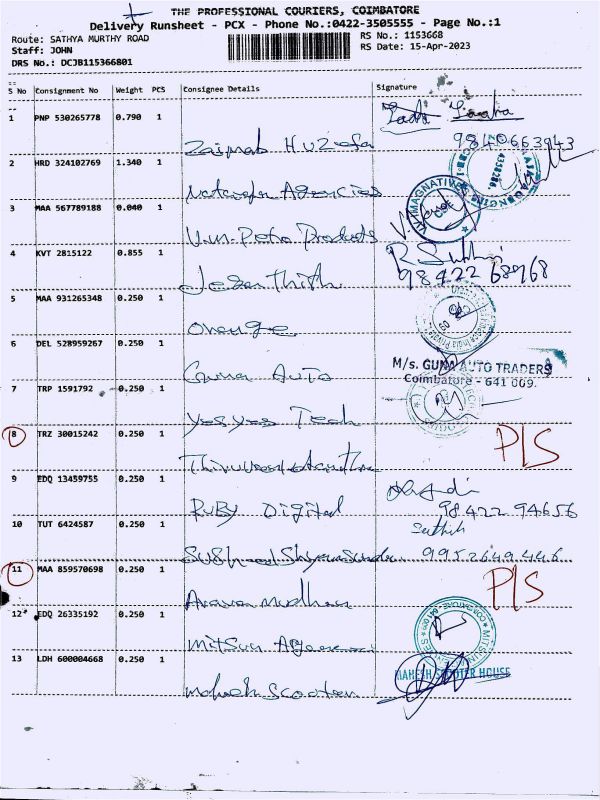 THE PROFESSIONAL COURIERS, COIMBATORE
Delivery Runsheet - PCX - Phone No.:0422-3505555 - Page No.:1
Route: SATHYA MURTHY ROAD
RS No.: 1153668
Staff: JOHN
RS Date: 15-Apr-2023
DRS No.: DCJB115366801
S No Consignment No Weight PCS Consignee Details Signature
1 PNP 530265778 0.790 1
Zainab Huzefa 9840663943
2 HRD 324102769 1.340 1
Agencies
3 MAA 567789188 0.040 1
Vim-Petro Products
4 KVT 2815122 0.855 1
98422 68968
5 MAA 931265348 0.250 1
Orange
6 DEL 528959267 0.250 1
Guna Auto
M/s. GUNA AUTO TRADERS
Coimbatore - 641 009.
7 TRP 1591792 0.250 1
yesyes Tech
8 TRZ 30015242 0.250 1
P/S
9 EDQ 13459755 0.250 1
Ruby Digital 98422 94656
10 TUT 6424587 0.250 1
Sathish
9952649446
11 MAA 859570698 0.250 1
P/S
12 EDQ 26335192 0.250 1
Mitsun
13 LDH 600004668 0.250 1
MAHESH SCOOTER HOUSE
Mahesh Scooter